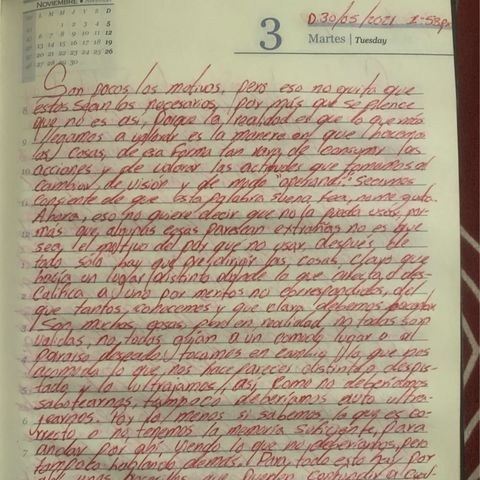 NOVIEMBRE • November
L M M J V S D
1 2 3 4 5
6 7 8 9 10 11 12
13 14 15 16 17 18 19
20 21 22 23 24 25 26
27 28 29 30
D 30/05/2021
3
Martes | Tuesday
Son pocos los motivos, pero eso no quita que
estos sean los necesarios, por más que se piense
que no es así, porque la realidad es que lo que más
llegamos a valorar es la manera en que hacemos
las cosas, de esa forma tan rara de consumir las
acciones y de valorar las actitudes que tomamos al
cambiar de visión y de modo "operandi"
consiente de que esta palabra suena fea, no me gusta.
Ahora, eso no quiere decir que no la pueda usar, por
más que algunas cosas parescan extrañas no es que
sea el motivo del por que no usar, después de
todo solo hay que las cosas, claro que
había un lugar distinto donde lo que
califica a uno por meritos no correspondidos, del
que tantos conocemos y que claro debemos
Son muchas cosas, pero en realidad no todas son
validas, no todas guian a un comodo lugar o al
paraiso deseado, tocamos en cambio lo que nos
acomoda lo que nos hace parecer distinto o
tado y lo ultrajamos, así como no deberíamos
sabotearnos, tampoco deberíamos auto
Por lo menos si sabemos lo que es co-
rrecto o no tenemos la memoria suficiente para
andar por ahí, viendo lo que no deberíamos, pero
tampoco hablando demás. Para todo esto hay por
que pueden